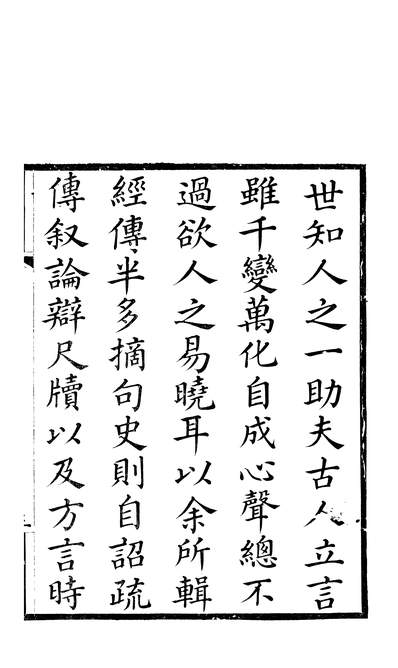 世知人之一助夫古人立言
雖千變萬化自成心聲總不
過欲人之易曉耳以余所輯
經傳半多摘句史則自詔疏
傳叙論辯尺牘以及方言時